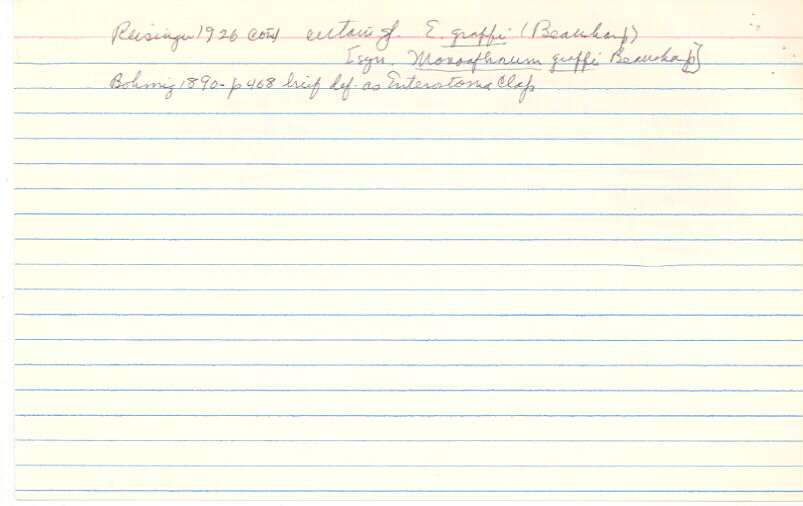 Reisinger 1926 cons certain sp. E. graffi (Beauchamp)
[syn. Monoophorum graffi Beauchamp]
Bohmig 1890 - p 468 brief def. as Enterostoma Clap